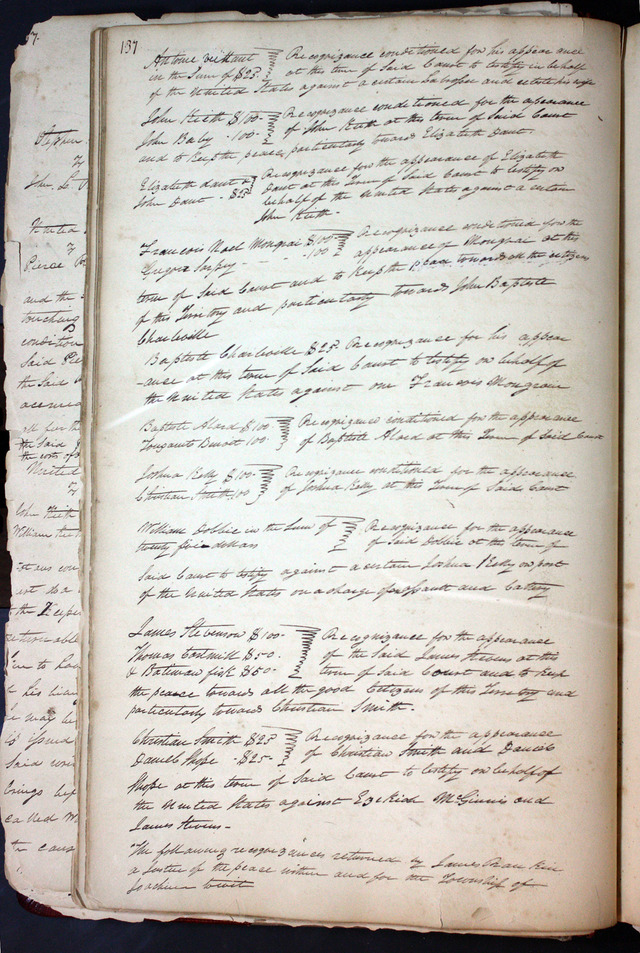 137
Antoine
in the Sum of $25 Recognizance conditioned for his appearance
at this term of Said Court to testify in behalf
of the United States against a certain and his wife
John Keith $100 Recognizance conditioned for the appearance
John Baby - 100 - of John Keith at this term of Said Court
and to keep the peace, particularly towards Elizabeth Dant.
Elizabeth Dant & Recognizance for the appearance of Elizabeth
John Dant - $25 Dant at this Term of Said Court to testify on
behalf of the United States against a certain
John Keith -
Francois Noel Mongrai $100 Recognizance conditioned for the
- - 100 appearance of Mongrai at this
term of Said Court and to keep the peace towards all the citizens
of this Territory and particularly towards John Baptiste
Charleville
Baptiste Charleville $25 Recognizance for his appear
-ance at this term of Said Court to testify on behalf of
the United States against one Francois Mongrain
Baptiste Alard $100 Recognizance conditioned for the appearance
Benoit 100 of Baptiste Alard at this Term of Said Court
Joshua Kelly $100 - Recognizance conditioned for the appearance
Christian Smith 100 of Joshua Kelly at this Term of Said Court
William Dobbie in the Sum of Recognizance for the appearance
twenty five dollars of Said Dobbie at this term of
Said Court to testify against a certain Joshua Kelly on part
of the United States on a charge of assault and Battery
James Stevenson $100 - Recognizance for the appearance
Thomas $50 - of the said James Stevens at this
& Bateman fisk $50 - term of Said Court and to keep
the peace towards all the good Citizens of this Territory and
particularly towards Christian Smith -
Christian Smith $25 Recognizance for the appearance
Daniel Shope - $25 - of Christian Smith and Daniel
Shope at this term of Said Court to testify on behalf of
the United States against Ezekiel McGinnis and
James Stevens -
The following recognizances returned by James Rankin
a Justice of the peace within and for the Township of
Joachim to wit